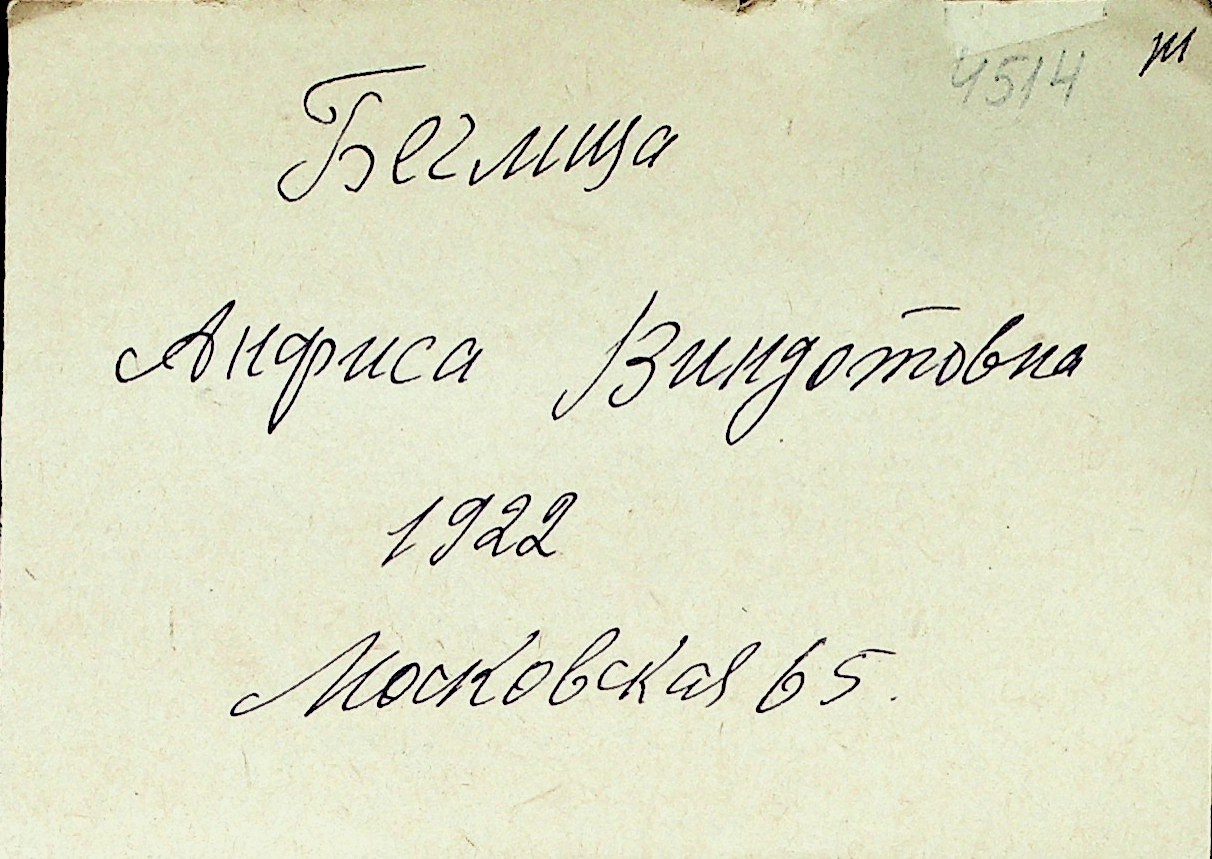 4514
Беглица
Анфиса Виндотовна
1922
Московская 65.